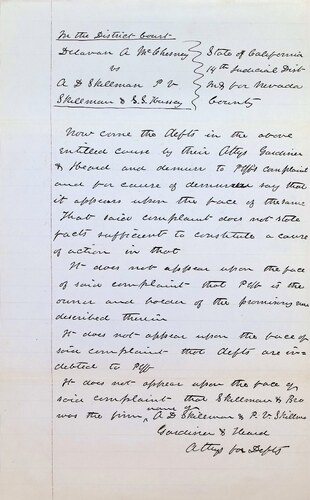 In the District Court
Delavan A McChesney State of California
vs 14th Judicial Dist
A D Skillman P V In & for Nevada
Skillman & S. S. Hussey County
Now come the defts in the above
entitled cause by their Attys Gardiner
& Heard and demurr to Plffs complaint
and for cause of demurrer say that
it appears upon the face of the same
That said complaint does not state
facts sufficient to constitute a cause
of action in that
It does not appear upon the face
of said complaint that Plff is the
owner and holder of the promisory note
described therein
It does not appear upon the face of
said complaint that defts are in-
debted to Plff
It does not appear upon the face of
said complaint that Skillman & Bro
was the firm name of A D Skillman & P. V. Skillman
Gardiner & Heard
Attys for Defts